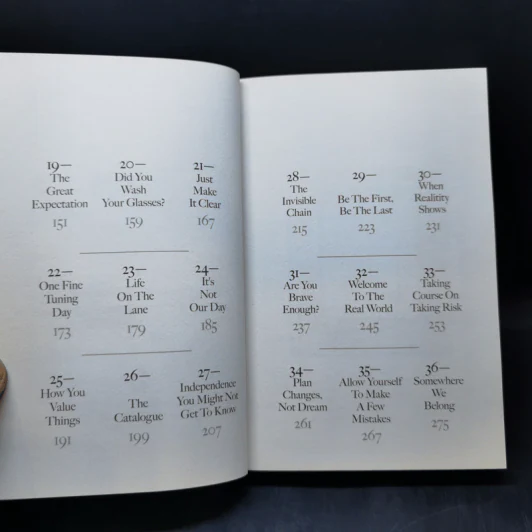 19—
The
Great
Expectation
151
20—
Did You
Wash
Your Glasses?
159
21—
Just
Make
It Clear
167
22—
One Fine
Tuning
Day
173
23—
Life
On The
Lane
179
24—
It's
Not
Our Day
185
25—
How You
Value
Things
191
26—
The
Catalogue
199
27—
Independence
You Might Not
Get To Know
207
28—
The
Invisible
Chain
215
29—
Be The First,
Be The Last
223
30—
When
Realitity
Shows
231
31—
Are You
Brave
Enough?
237
32—
Welcome
To The
Real World
245
33—
Taking
Course On
Taking Risk
253
34—
Plan
Changes,
Not Dream
261
35—
Allow Yourself
To Make
A Few
Mistakes
267
36—
Somewhere
We
Belong
275